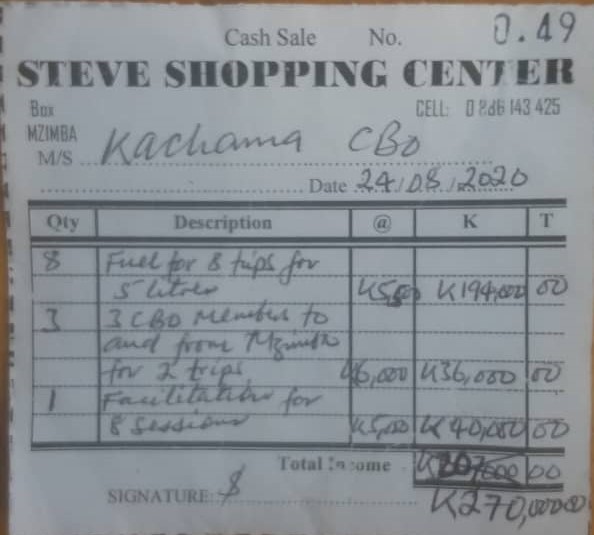 Cash Sale No. 0.49
STEVE SHOPPING CENTER
Box CELL: 0 886 143 425
MZIMBA
M/S Kachama CBO
Date 24/08/2020
Qty Description @ K T
8 Fuel for 8 trips for
5 litres K194,000 00
3 3 CBO Members to
and from Mzimba
for 2 trips K6,000 K36,000 00
1 Facilitation for
8 Sessions K5,000 K40,000 00
Total Income 00
SIGNATURE:
K270,000 00